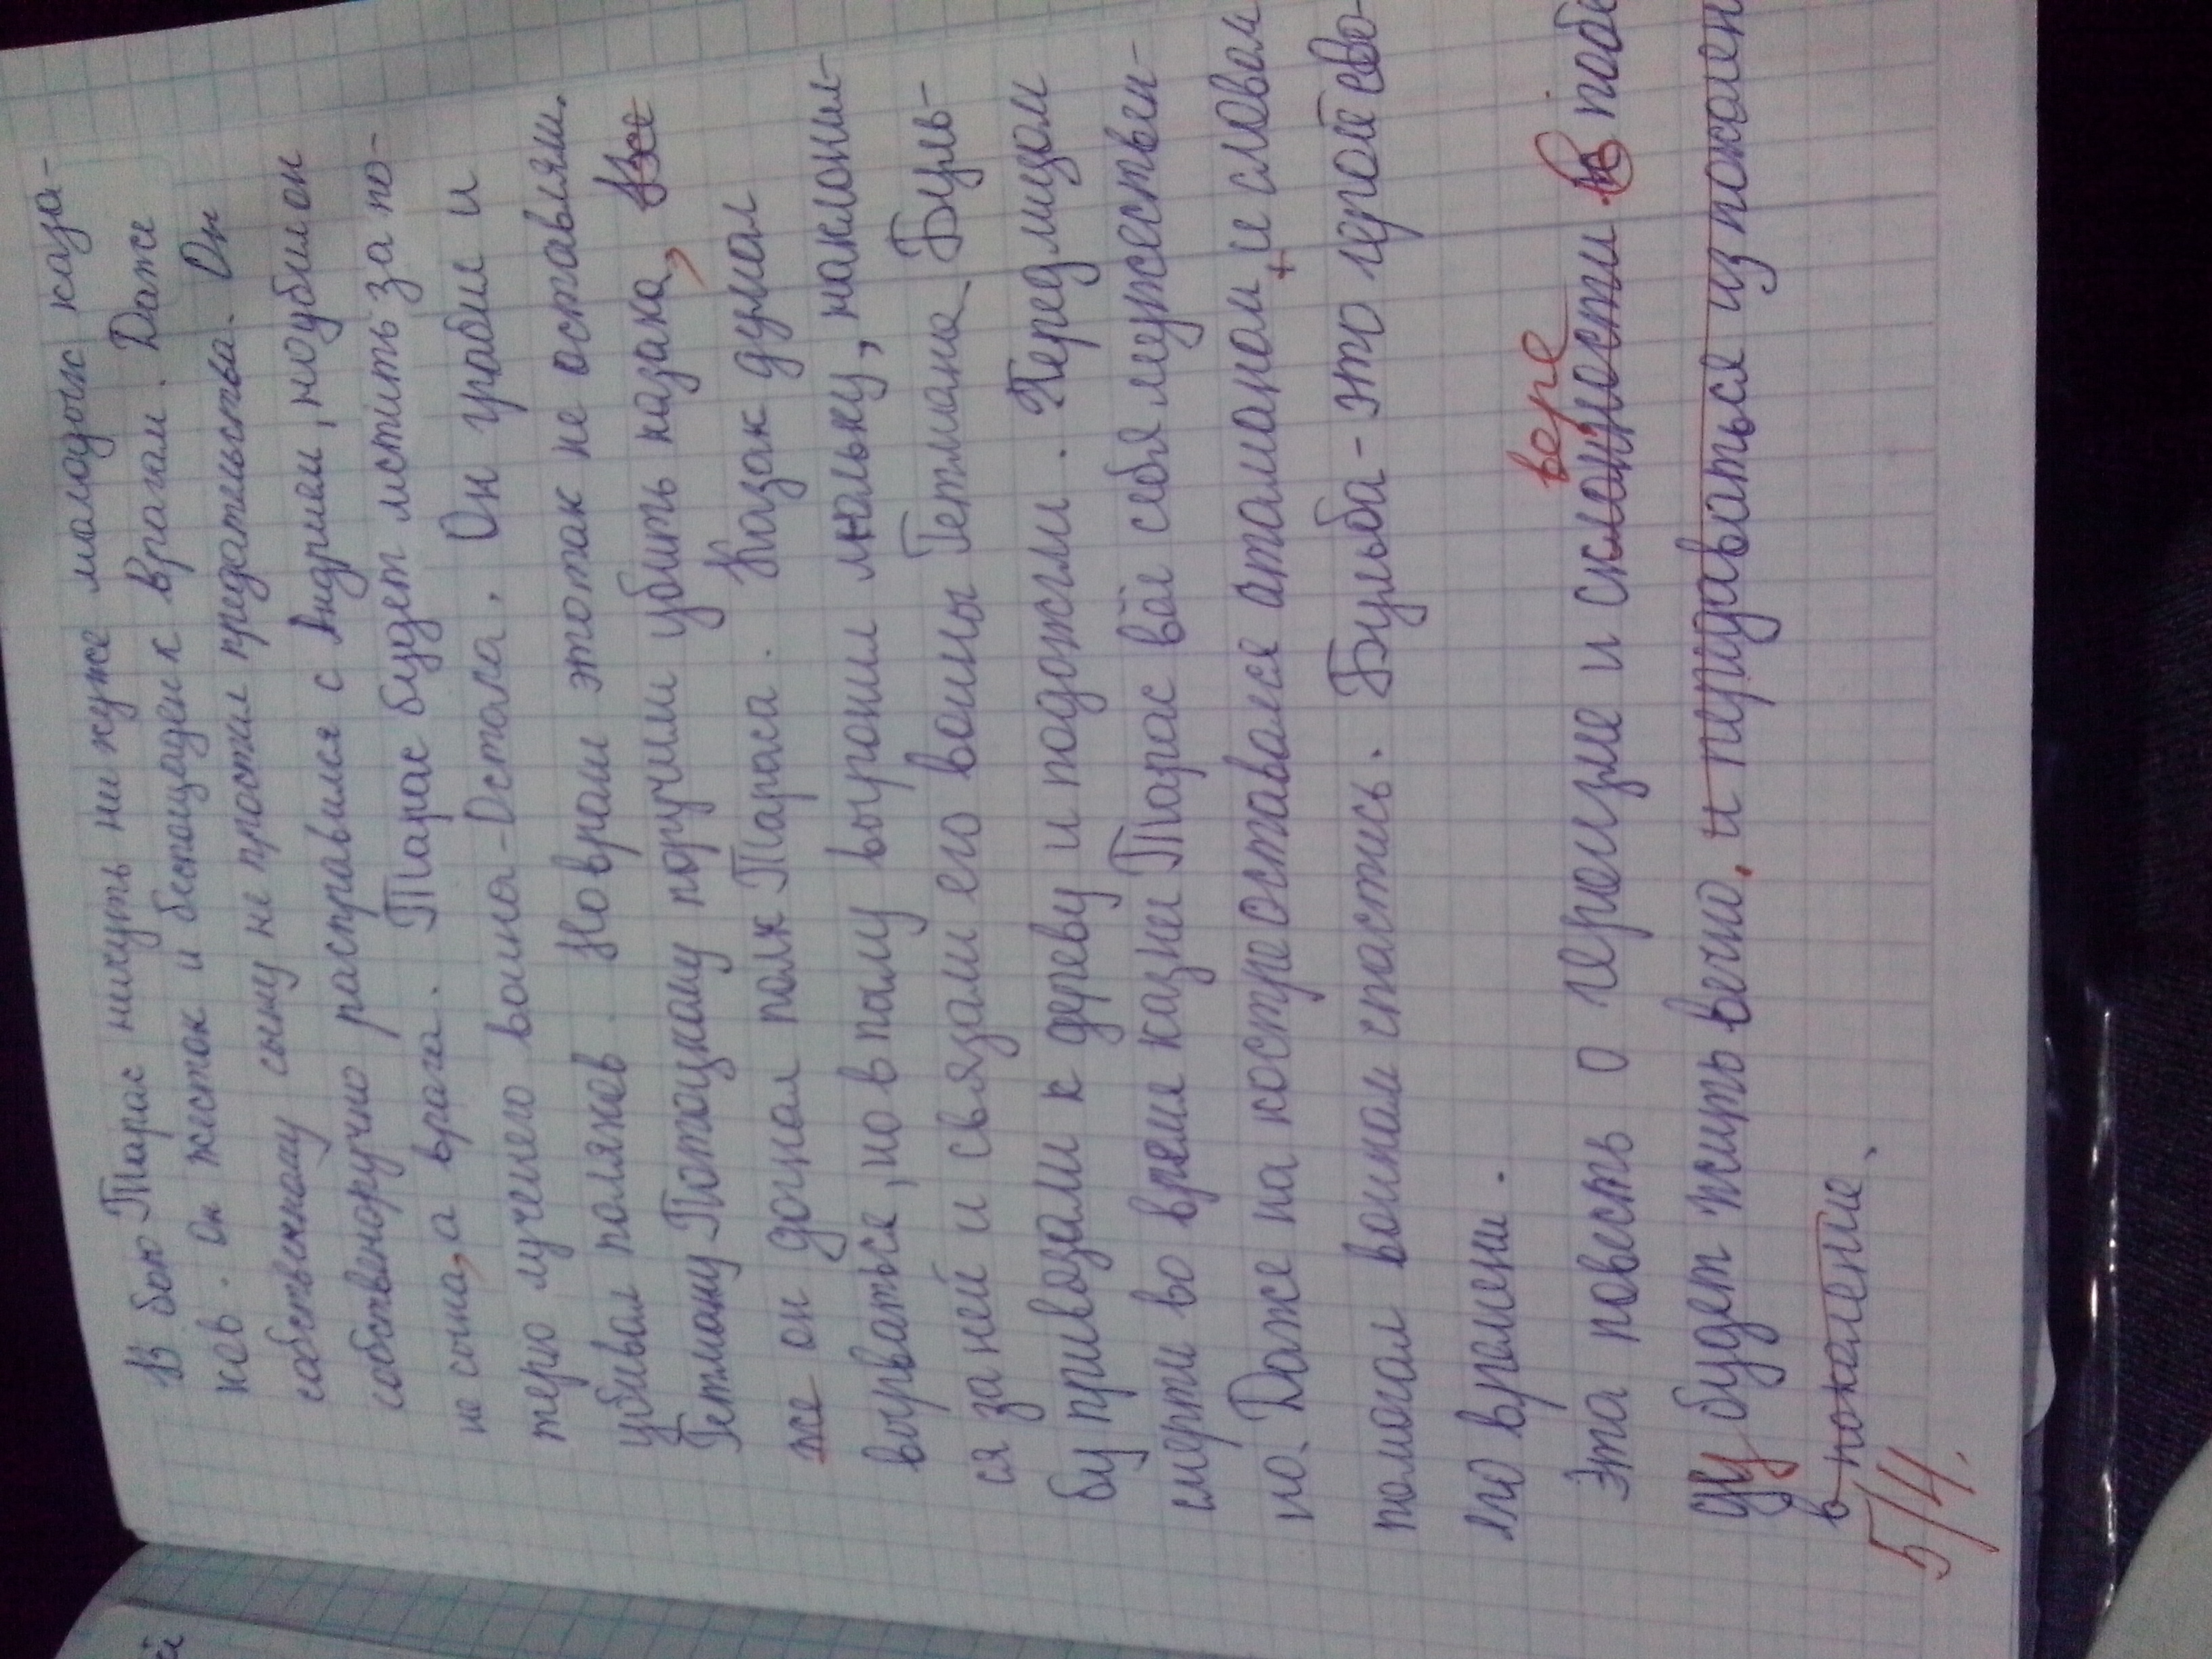 В бою Тарас ничуть ни хуже молодых каза-
ков. Он жесток и беспощаден к врагам. Даже
собственному сыну не простил предательства. Он
собственоручно расправился с Андрием, но убил он
не сына, а врага. Тарас будет мстить за по-
терю лучшего воина-Остапа. Он грабил и
убивал поляков. Но враги это так не оставили.
Гетману Потоцкому поручили убить казака,
же он догнал полк Тараса. Казак думал
вырваться, но в полу выронил люльку, наклонил-
ся за ней и связали его воины Гетмана. Буль-
бу привязали к дереву и подожгли. Перед лицом
смерти во время казни Тарас вёл себя мужествен-
но. Даже на костре оставался атаманом и словом
помогал воинам спастись. Бульба - это герой сво-
его времени.
вере
Эта повесть о героизме и склонности в побе
ду будет жить вечно, и передаваться из поколен
в поколение.
5/4.
ей